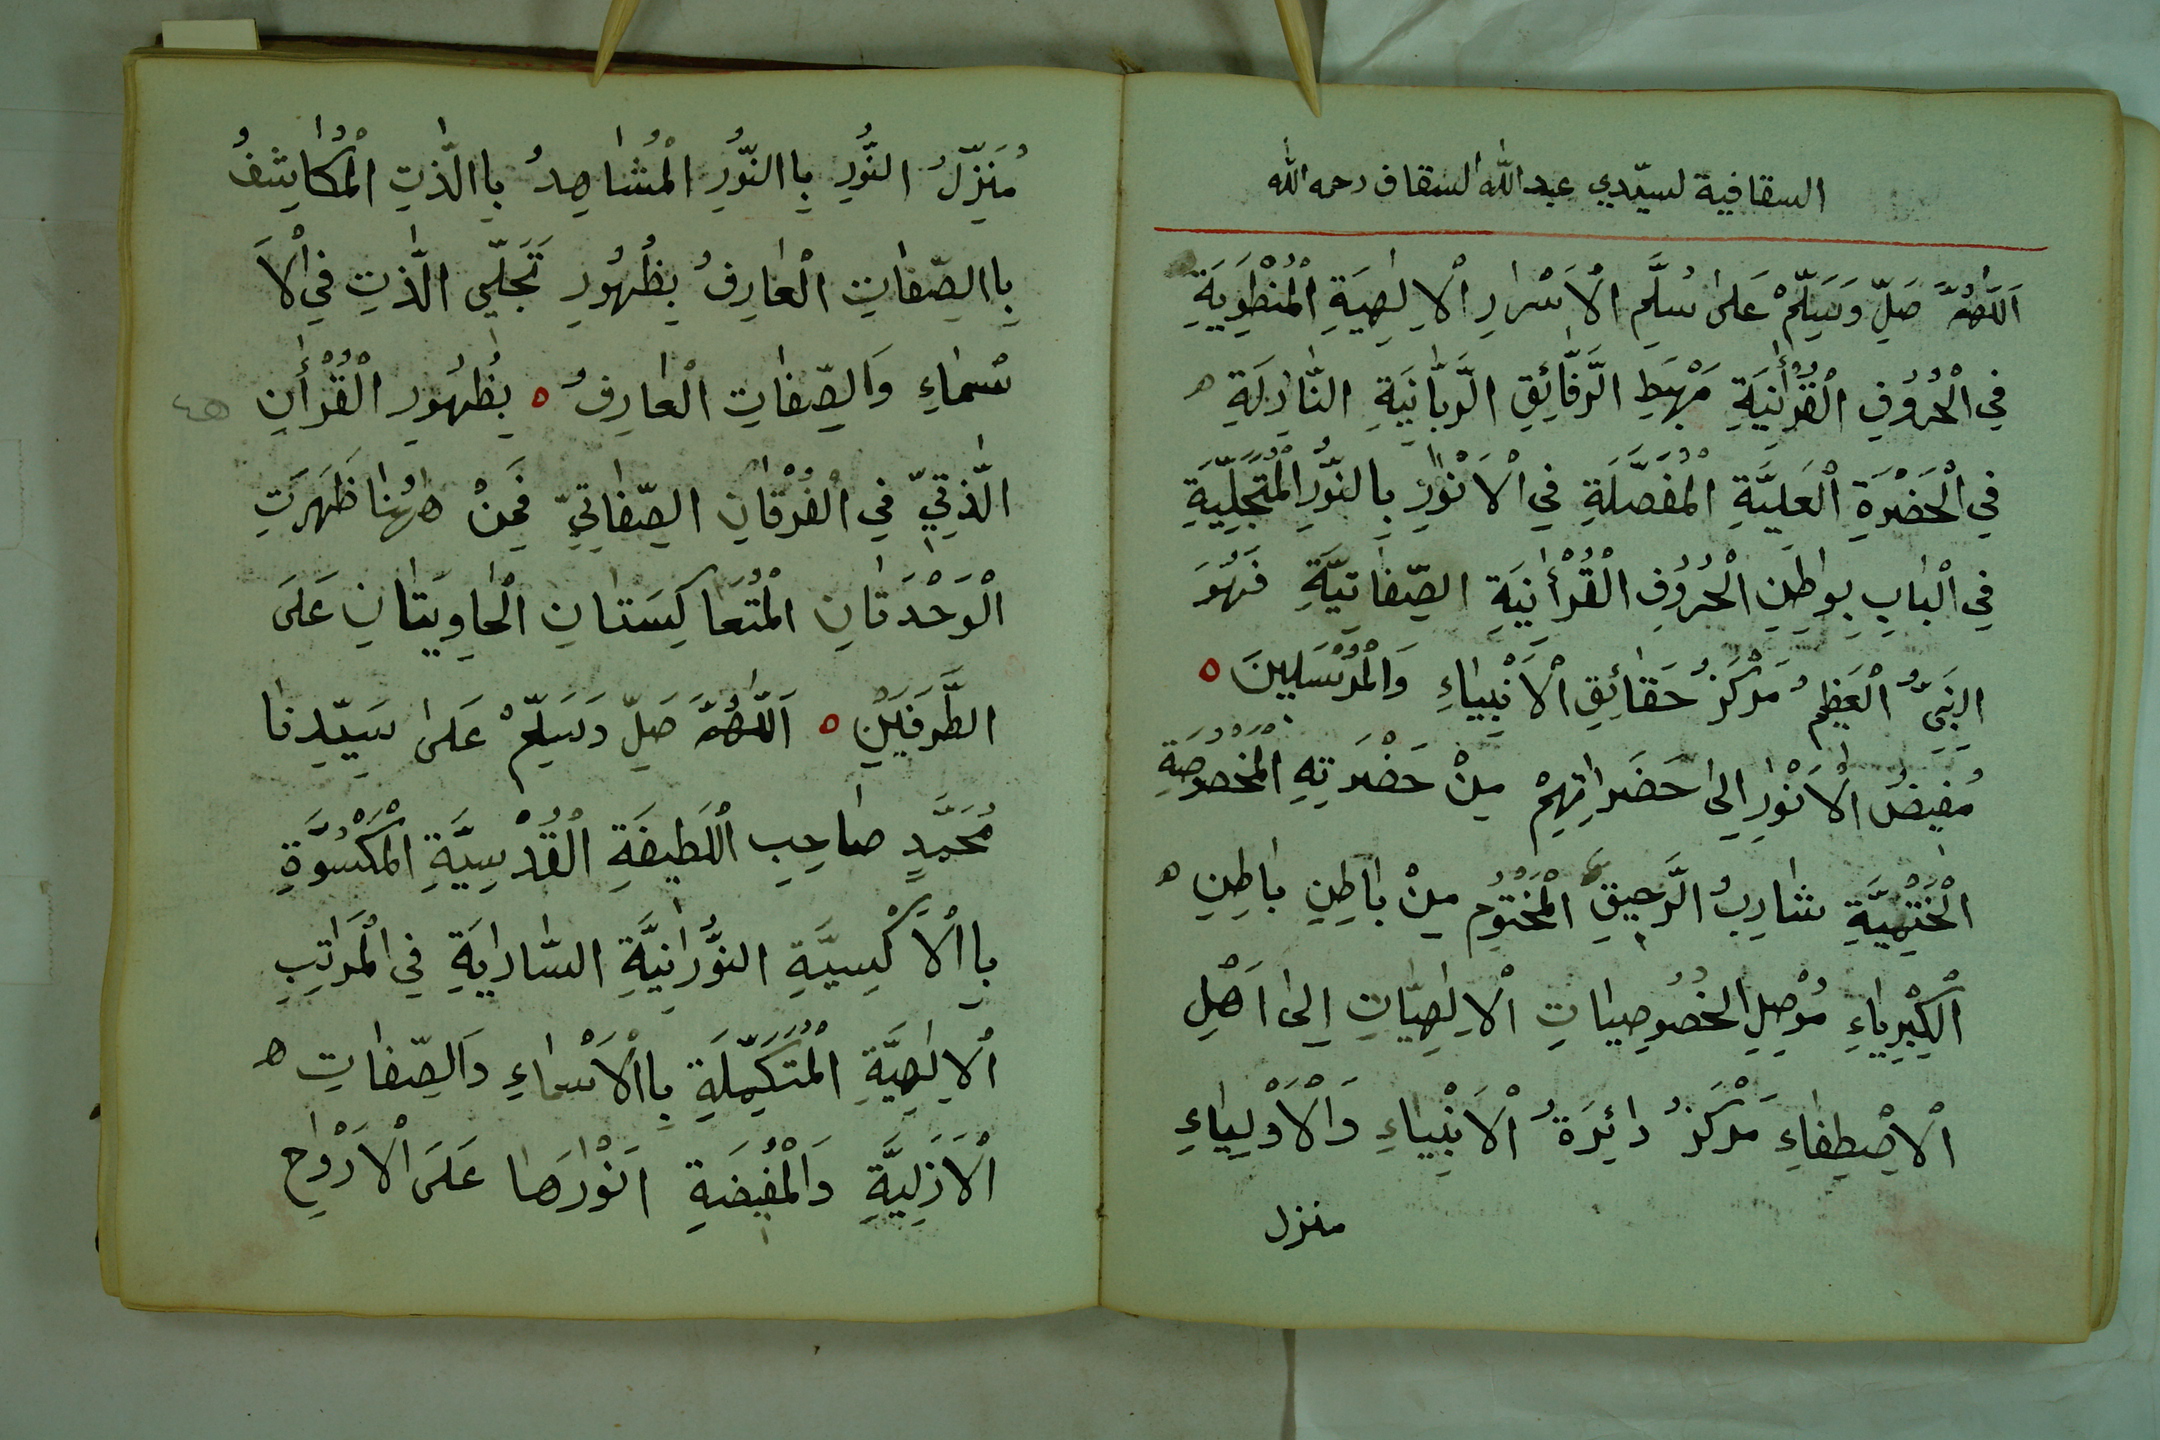 السقافية لسيّدي عبد الله السقاف رحمه الله
اَللّٰهُمَّ صَلِّ وَسَلِّمْ عَلىٰ سُلَّمِ الْاَسْرٰارِ الْاِلٰهِيَةِ الْمُنْطَوِيَةِ
فِي الْحُرُوفِ الْقُرْأٰنِيَةِ مَهْبَطِ الرَّقٰائِقِ الرَّبّٰانِيَةِ النّٰازِلَةِ ه
فِي الْحَضْرَةِ الْعَلِيَّةِ الْمُفَصَّلَةِ فِي الْاَنْوٰارِ بِالنُّورِ الْمُتَجَلِّيَةِ
فِي الْبٰابِ بِوٰاطِنِ الْحُرُوفِ الْقُرْأٰنِيَةِ الصِّفٰاتِيَّةِ فَهُوَ
النَّبِيُّ الْعَظِيمُ مَرْكَزُ حَقٰائِقِ الْاَنْبِيٰاءِ وَالْمُرْسَلِينَ ه
مُفِيضُ الْاَنْوٰارِ اِلىٰ حَضَرٰاتِهِمْ مِنْ حَضْرَتِهِ الْمَخْصُوصَةِ
الْخَتْمِيَّةِ شٰارِبُ الرَّحِيقِ الْمَخْتُومِ مِنْ بٰاطِنِ بٰاطِنِ ه
الْكِبْرِيٰاءِ مُوْصِلِ الْخُصُوصِيٰاتِ الْاِلٰهِيّٰاتِ اِلىٰ اَهْلِ
الْاِصْطِفٰاءِ مَرْكَزُ دٰائِرَةُ الْاَنْبِيٰاءِ وَالْاَوْلِيٰاءِ
منزل
مُنَزِّلُ النُّورِ بِاالنُّورُ الْمُشٰاهِدُ بِاالذّٰتِ الْمُكٰاشِفُ
بِاالصِّفٰاتِ الْعٰارِفُ بِظُهُورِ تَجَلِّي الذّٰتِ فِي الْاَ
سْمٰاءِ وَالصِّفٰاتِ الْعٰارِفُ ه بِظُهُورِ الْقُرْأٰنِ
الذّٰتِيِّ فِي الْفُرْقٰانِ الصِّفٰاتِيِّ فَمِنْ هٰهُنٰا ظَهَرَتِ
الْوَحْدَتٰانِ الْمُتَعٰاكِسَتٰانِ الْحٰاوِيَتٰانِ عَلَى
الطَّرَفَيْنِ ه اَللّٰهُمَّ صَلِّ وَسَلِّمْ عَلىٰ سَيِّدِنٰا
مُحَمَّدٍ صٰاحِبِ اللَّطِيفَةِ الْقُدْسِيَّةِ الْمَكْسُوَّةِ
بِاالْاَكْسِيَّةِ النُّورٰانِيَّةِ السّٰارِيَةِ فِي الْمَرٰاتِبِ
الْاِلٰهِيَّةِ الْمُتَكَمِّلَةِ بِاالْاَسْمٰاءِ وَالصِّفٰاتِ ه
الْاَزَلِيَّةِ وَالْمُفِيضَةِ اَنْوٰارَهٰا عَلَى الْاَرْوٰاحِ